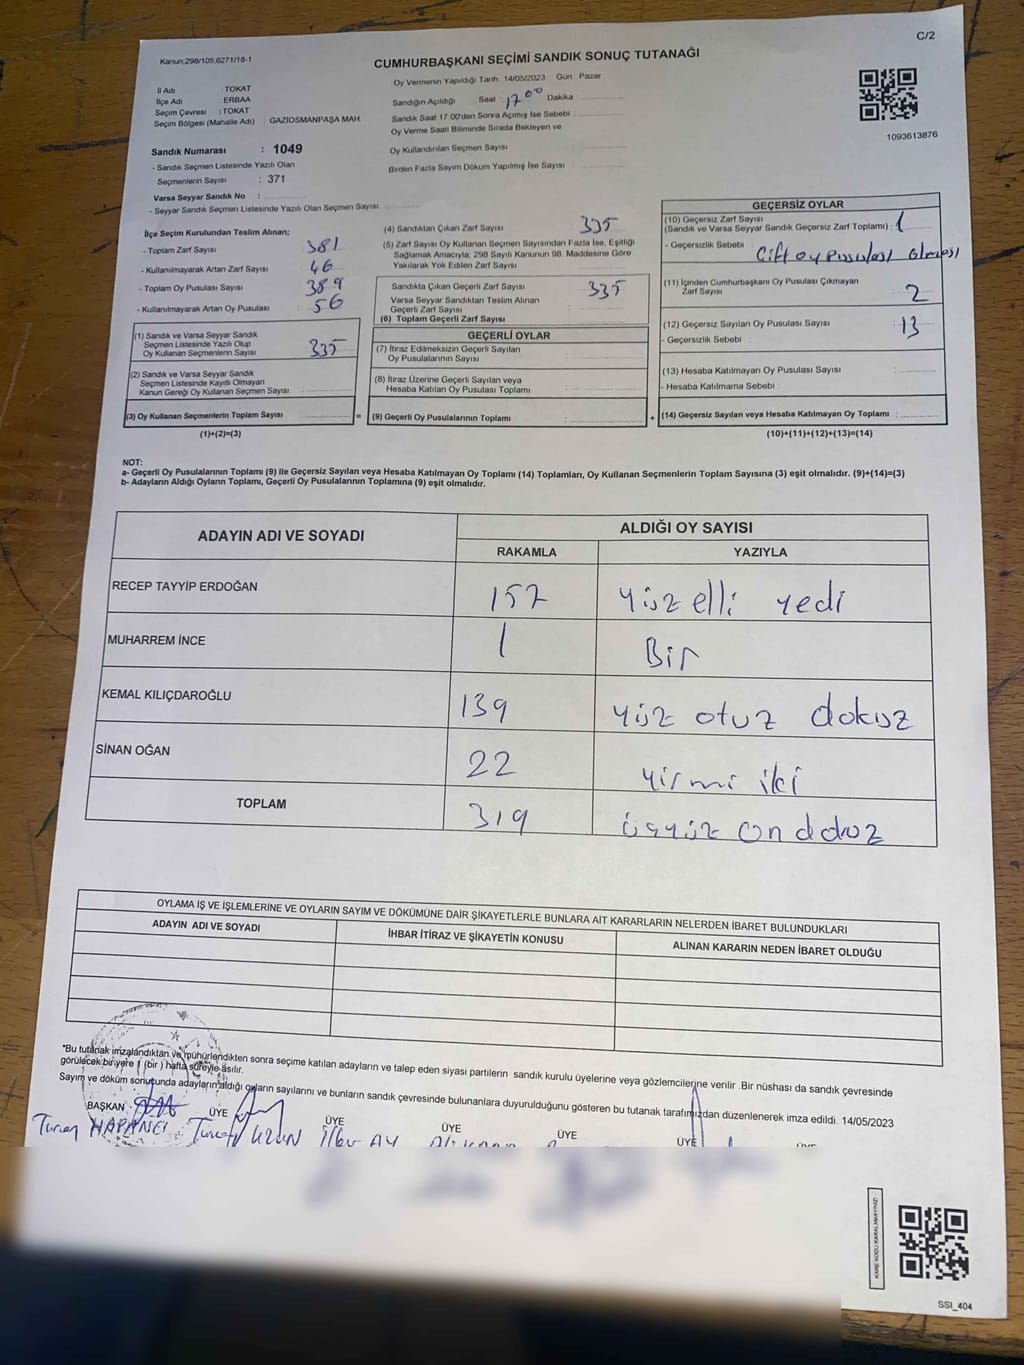 C/2
Kanun,298/105,6271/18-1
CUMHURBAŞKANI SEÇİMİ SANDIK SONUÇ TUTANAĞI
Oy Vermenin Yapıldığı Tarih : 14/05/2023 Gün : Pazar
İl Adı : TOKAT
İlçe Adı : ERBAA
Seçim Çevresi : TOKAT
Seçim Bölgesi (Mahalle Adı) : GAZİOSMANPAŞA MAH.
Sandığın Açıldığı Saat : 17 00 Dakika
Sandık Saat 17.00'den Sonra Açımış İse Sebebi :
Oy Verme Saati Bitiminde Sırada Bekleyen ve
Oy Kullandırılan Seçmen Sayısı
Birden Fazla Sayım Döküm Yapılmış İse Sayısı
1093613876
Sandık Numarası : 1049
- Sandık Seçmen Listesinde Yazılı Olan
Seçmenlerin Sayısı : 371
Varsa Seyyar Sandık No :
- Seyyar Sandık Seçmen Listesinde Yazılı Olan Seçmen Sayısı
İlçe Seçim Kurulundan Teslim Alınan;
- Toplam Zarf Sayısı 381
- Kullanılmayarak Artan Zarf Sayısı 46
- Toplam Oy Pusulası Sayısı 389
- Kullanılmayarak Artan Oy Pusulası 56
(1) Sandık ve Varsa Seyyar Sandık
Seçmen Listesinde Yazılı Olup
Oy Kullanan Seçmenlerin Sayısı 335
(2) Sandık ve Varsa Seyyar Sandık
Seçmen Listesinde Kayıtlı Olmayan
Kanun Gereği Oy Kullanan Seçmen Sayısı
(3) Oy Kullanan Seçmenlerin Toplam Sayısı =
(1)+(2)=(3)
(4) Sandıktan Çıkan Zarf Sayısı 335
(5) Zarf Sayısı Oy Kullanan Seçmen Sayısından Fazla İse, Eşitliği
Sağlamak Amacıyla; 298 Sayılı Kanunun 98. Maddesine Göre
Yakılarak Yok Edilen Zarf Sayısı
Sandıkta Çıkan Geçerli Zarf Sayısı 335
Varsa Seyyar Sandıktan Teslim Alınan
Geçerli Zarf Sayısı
(6) Toplam Geçerli Zarf Sayısı
GEÇERLİ OYLAR
(7) İtiraz Edilmeksizin Geçerli Sayılan
Oy Pusulalarının Sayısı
(8) İtiraz Üzerine Geçerli Sayılan veya
Hesaba Katılan Oy Pusulası Toplamı
(9) Geçerli Oy Pusulalarının Toplamı +
GEÇERSİZ OYLAR
(10) Geçersiz Zarf Sayısı
(Sandık ve Varsa Seyyar Sandık Geçersiz Zarf Toplamı) : 1
- Geçersizlik Sebebi : Çift oy pusulası olması
(11) İçinden Cumhurbaşkanı Oy Pusulası Çıkmayan
Zarf Sayısı 2
(12) Geçersiz Sayılan Oy Pusulası Sayısı 13
- Geçersizlik Sebebi :
(13) Hesaba Katılmayan Oy Pusulası Sayısı
- Hesaba Katılmama Sebebi :
(14) Geçersiz Sayılan veya Hesaba Katılmayan Oy Toplamı :
(10)+(11)+(12)+(13)=(14)
NOT:
a- Geçerli Oy Pusulalarının Toplamı (9) ile Geçersiz Sayılan veya Hesaba Katılmayan Oy Toplamı (14) Toplamları, Oy Kullanan Seçmenlerin Toplam Sayısına (3) eşit olmalıdır. (9)+(14)=(3)
b- Adayların Aldığı Oyların Toplamı, Geçerli Oy Pusulalarının Toplamına (9) eşit olmalıdır.
ADAYIN ADI VE SOYADI ALDIĞI OY SAYISI
RAKAMLA YAZIYLA
RECEP TAYYİP ERDOĞAN 157 yüz elli yedi
MUHARREM İNCE 1 Bir
KEMAL KILIÇDAROĞLU 139 yüz otuz dokuz
SİNAN OĞAN 22 yirmi iki
TOPLAM 319 üçyüz on dokuz
OYLAMA İŞ VE İŞLEMLERİNE VE OYLARIN SAYIM VE DÖKÜMÜNE DAİR ŞİKAYETLERLE BUNLARA AİT KARARLARIN NELERDEN İBARET BULUNDUKLARI
ADAYIN ADI VE SOYADI İHBAR İTİRAZ VE ŞİKAYETİN KONUSU ALINAN KARARIN NEDEN İBARET OLDUĞU
*Bu tutanak imzalandıktan ve mühürlendikten sonra seçime katılan adayların ve talep eden siyasi partilerin sandık kurulu üyelerine veya gözlemcilerine verilir .Bir nüshası da sandık çevresinde
görülecek bir yere 1 (bir ) hafta süreyle asılır.
Sayım ve döküm sonucunda adayların aldığı oyların sayılarını ve bunların sandık çevresinde bulunanlara duyurulduğunu gösteren bu tutanak tarafımızdan düzenlenerek imza edildi. 14/05/2023
BAŞKAN ÜYE ÜYE ÜYE ÜYE ÜYE
UZUN İlker AY
KARE KODU KARALAMAYINIZ!
SSI_404